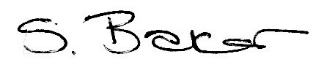 S. Baker